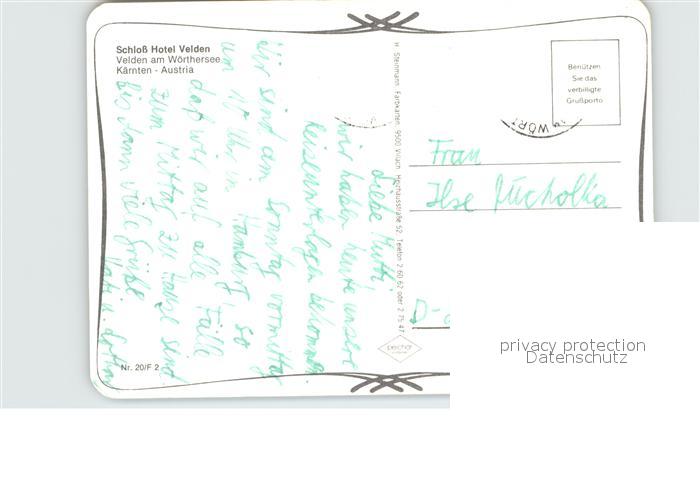 Schloß Hotel Velden
Velden am Wörthersee
Kärnten - Austria
Liebe Mutti,
wir haben heute unsere
Reiseunterlagen bekommen.
Wir sind am Sonntag vormittag
um Uhr in Hamburg so
daß wir auf alle Fälle
zum Mittag zu Hause sind
Bis dann viele Grüße
H. Steinmann Farbkarten, 9500 Villach, Telefon 2 60 62 oder 2 75 47
Benützen
Sie das
verbilligte
Grußporto
WÖRT
Frau
Ilse Mucholka
D-
Nr. 20/F 2
privacy protection
Datenschutz